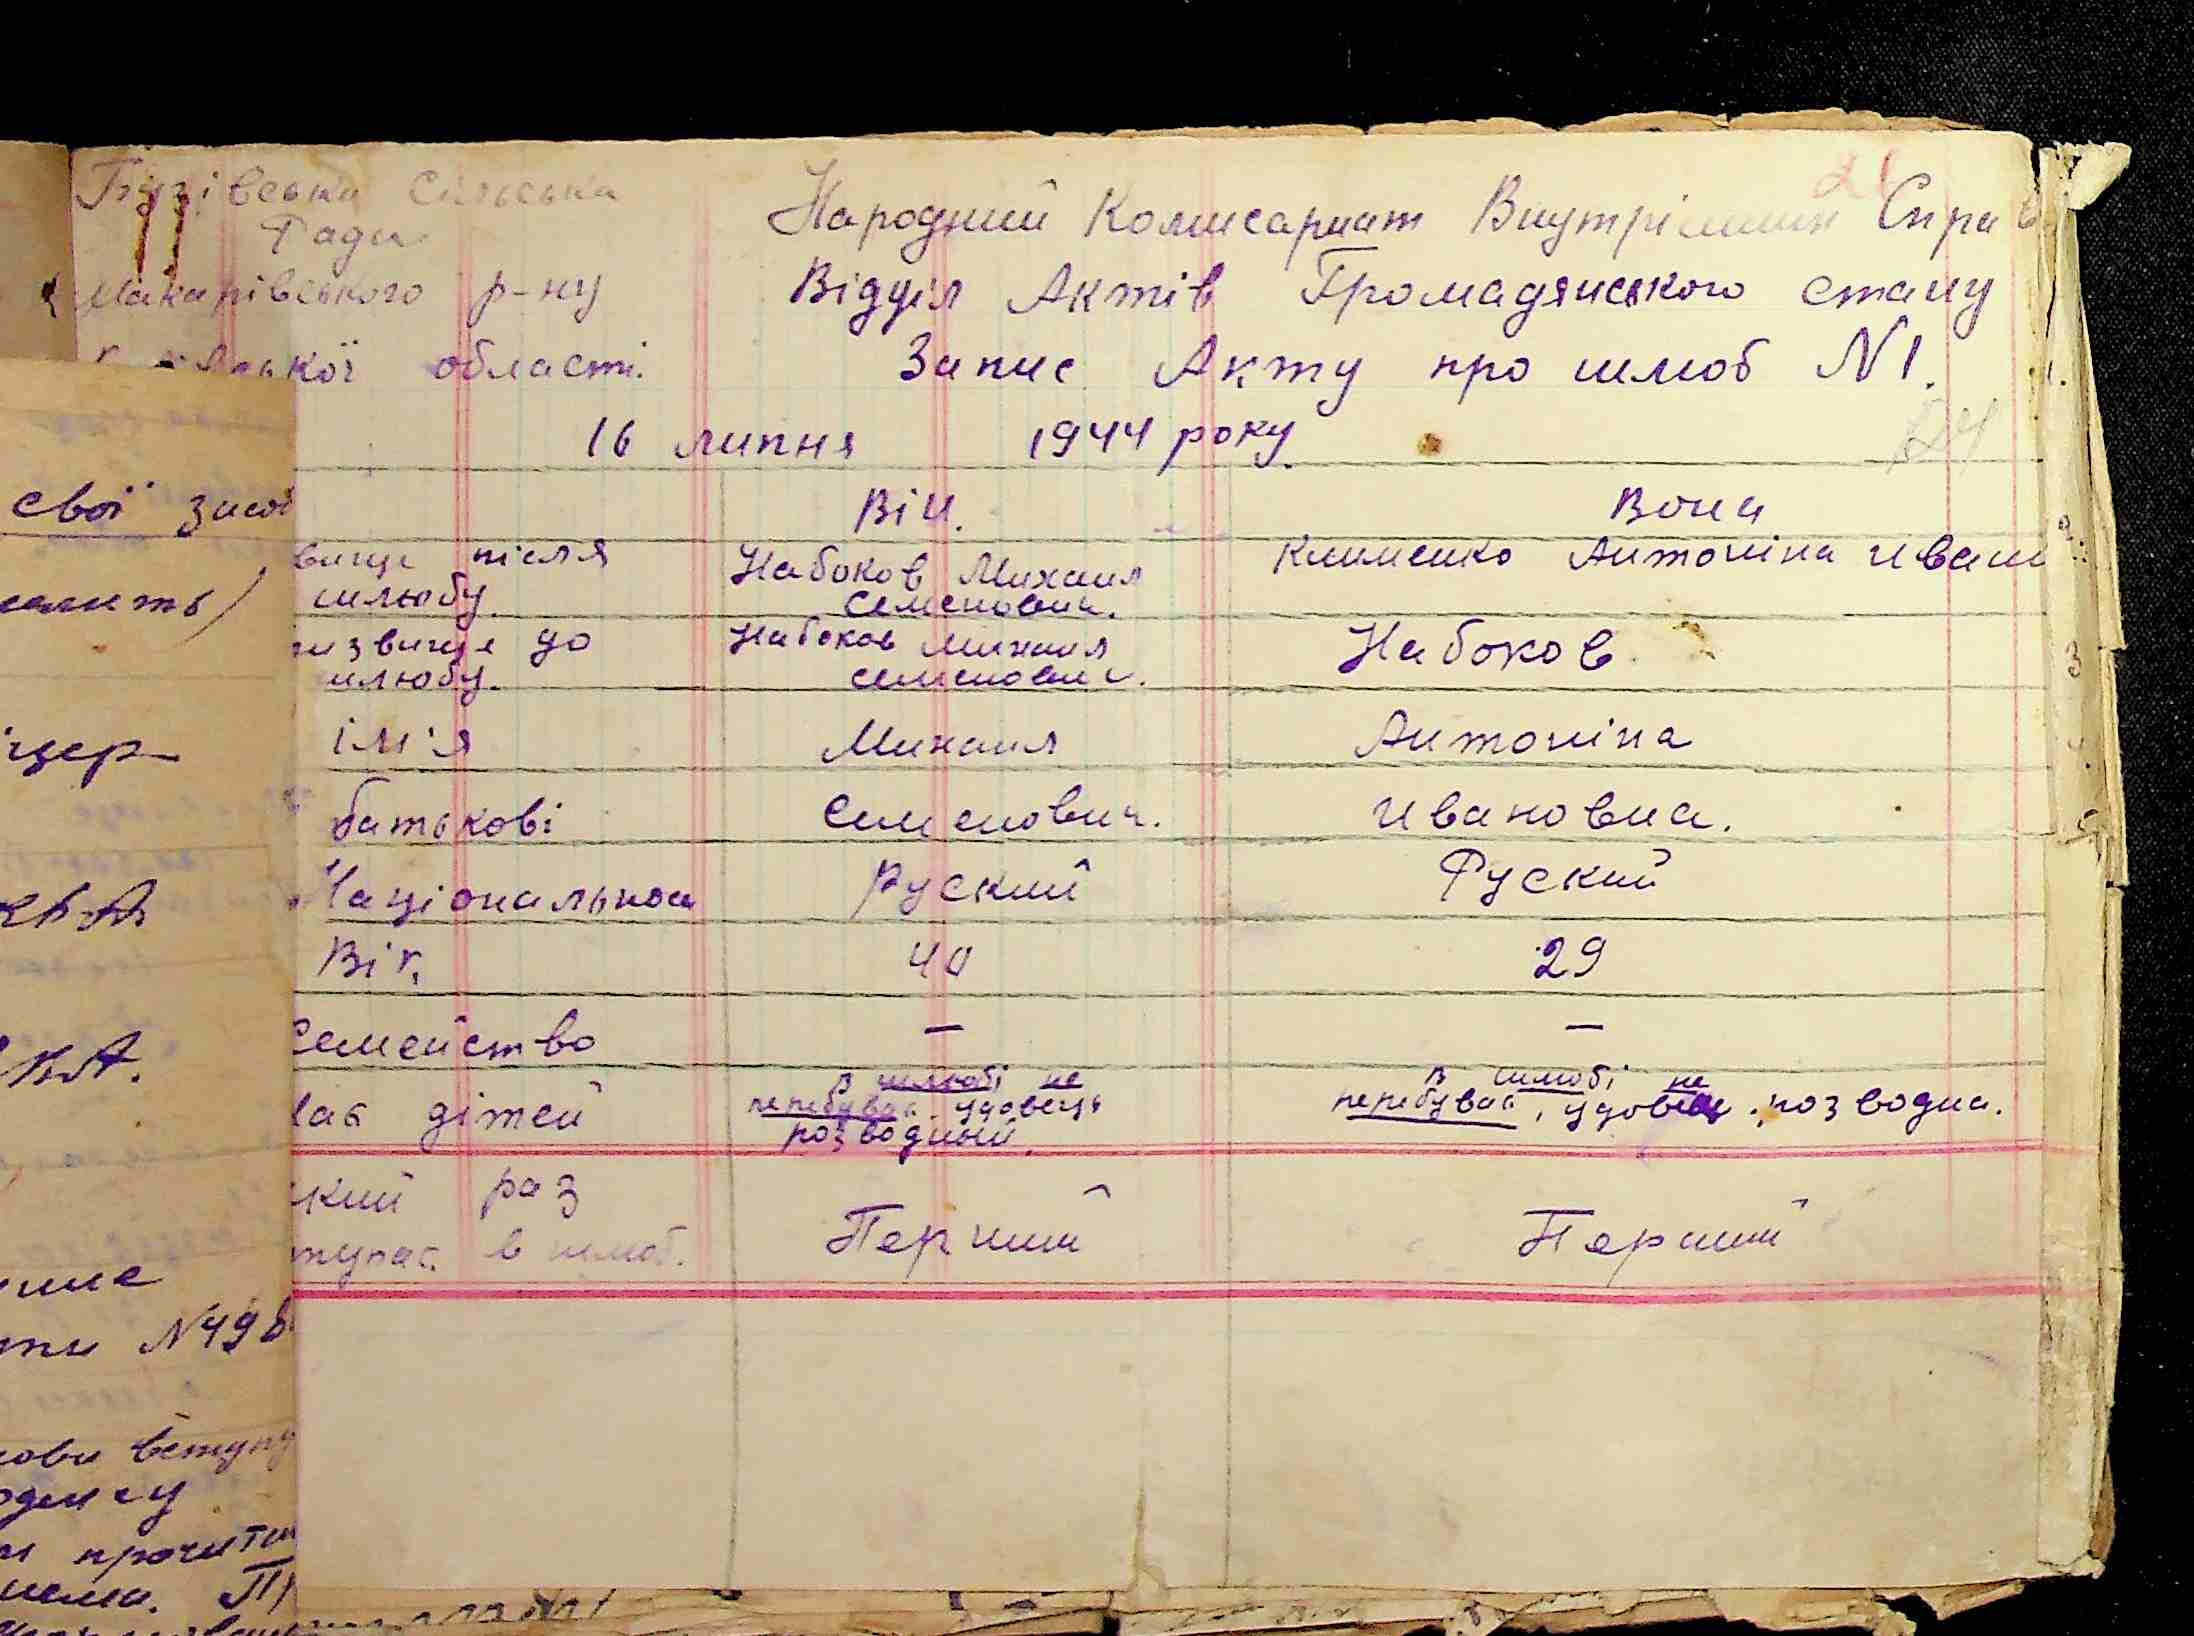 Бузівська Сільська
Рада
Макарівського р-ну
області.
Народний Комисариат Внутрішних Справ
Відділ Актів Громадянського стану
Запис Акту про шлюб N1.
16 липня 1944 року.
24
Він. Вона
вище після шлюбу. Набоков Михаил Семенович. Клименко Антоніна Иван
ризвище до шлюбу. Набоков Михаил Семенович. Набоков
ім'я Михаил Антоніна
батькові Семенович. Ивановна.
Національнос Руский Руский
Вік. 40 29
Семейство — —
має дітей в шлюбі не перебував. удовець розводный. в шлюбі не перебував, удовец, розводна.
який раз
тупає в шлюб. Перший Перший
свої засоб
N498
прочитан